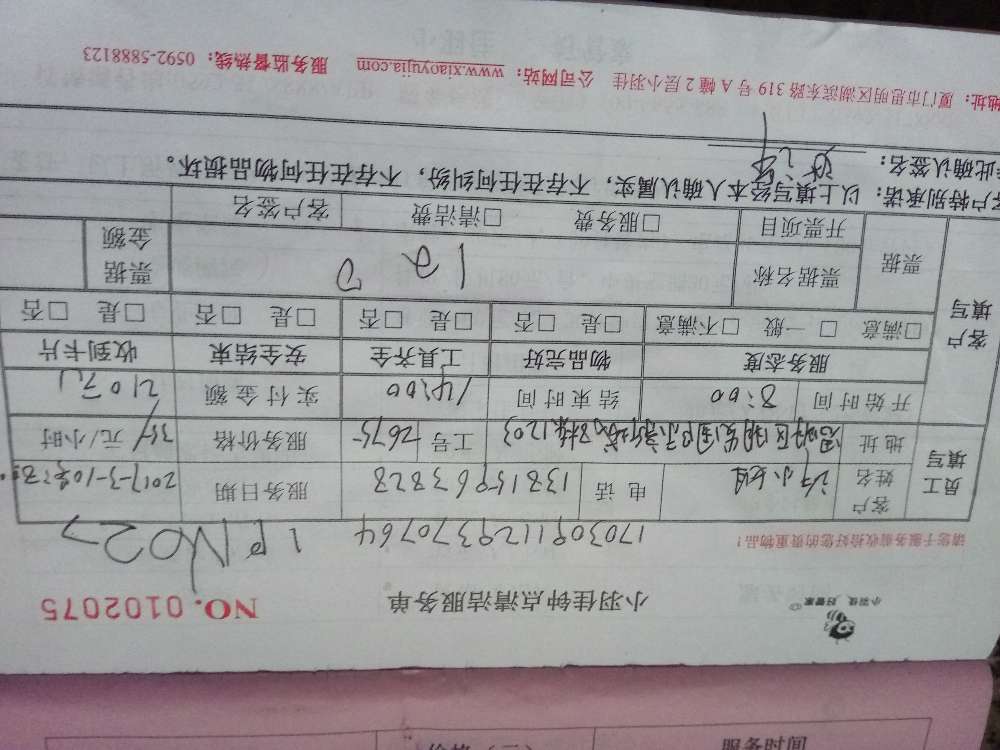 小羽佳 好管家
小羽佳钟点清洁服务单
NO. 0102075
请您于服务前收拾好您的贵重物品！
1703091129370764
员工填写
客户姓名 许小姐 电话 13815963828 服务日期
地址 工号 2675 服务价格 35 元/小时
开始时间 8:00 结束时间 14:00 实付金额 210元
客户填写
服务态度 物品完好 工具齐全 安全结束 收到卡片
□满意 □一般 □不满意 □是 □否 □是 □否 □是 □否 □是 □否
票据 票据名称 票据金额
开票项目 □服务费 □清洁费 客户签名
客户特别承诺：以上填写经本人确认属实，不存在任何纠纷，不存在任何物品损坏。
在此确认签名：
地址：厦门市思明区湖滨东路 319 号 A 幢 2 层小羽佳 公司网站：www.xiaoyujia.com 服务监督热线：0592-5888123
服务时间